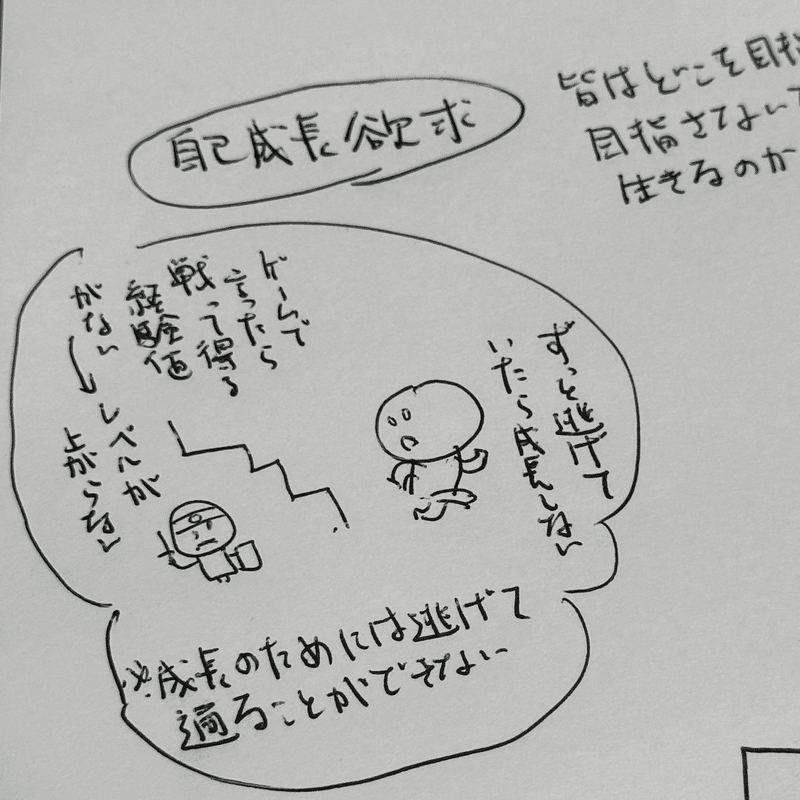 自己成長欲求
皆はどこを目指
目指さないで
生きるのか
ずっと逃げて
いたら成長しない
ゲームで
言ったら
戦って得る
経験値
がない→レベルが
上がらない
※成長のためには逃げて
適ることができない